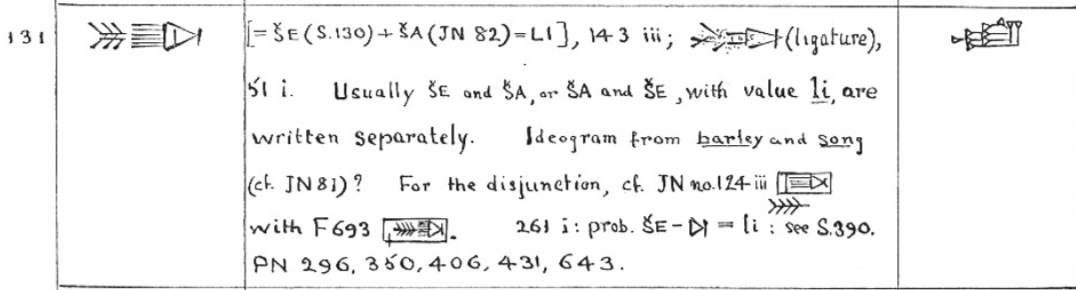 131 [= ŠE (S.130) + ŠA (JN 82) = LI], 143 iii; (ligature),
51 i. Usually ŠE and ŠA, or ŠA and ŠE, with value li, are
written separately. Ideogram from barley and song
(cf. JN 81)? For the disjunction, cf. JN no. 124 iii
with F693 . 261 i: prob. ŠE - = li : see S.390.
PN 296, 350, 406, 431, 643.